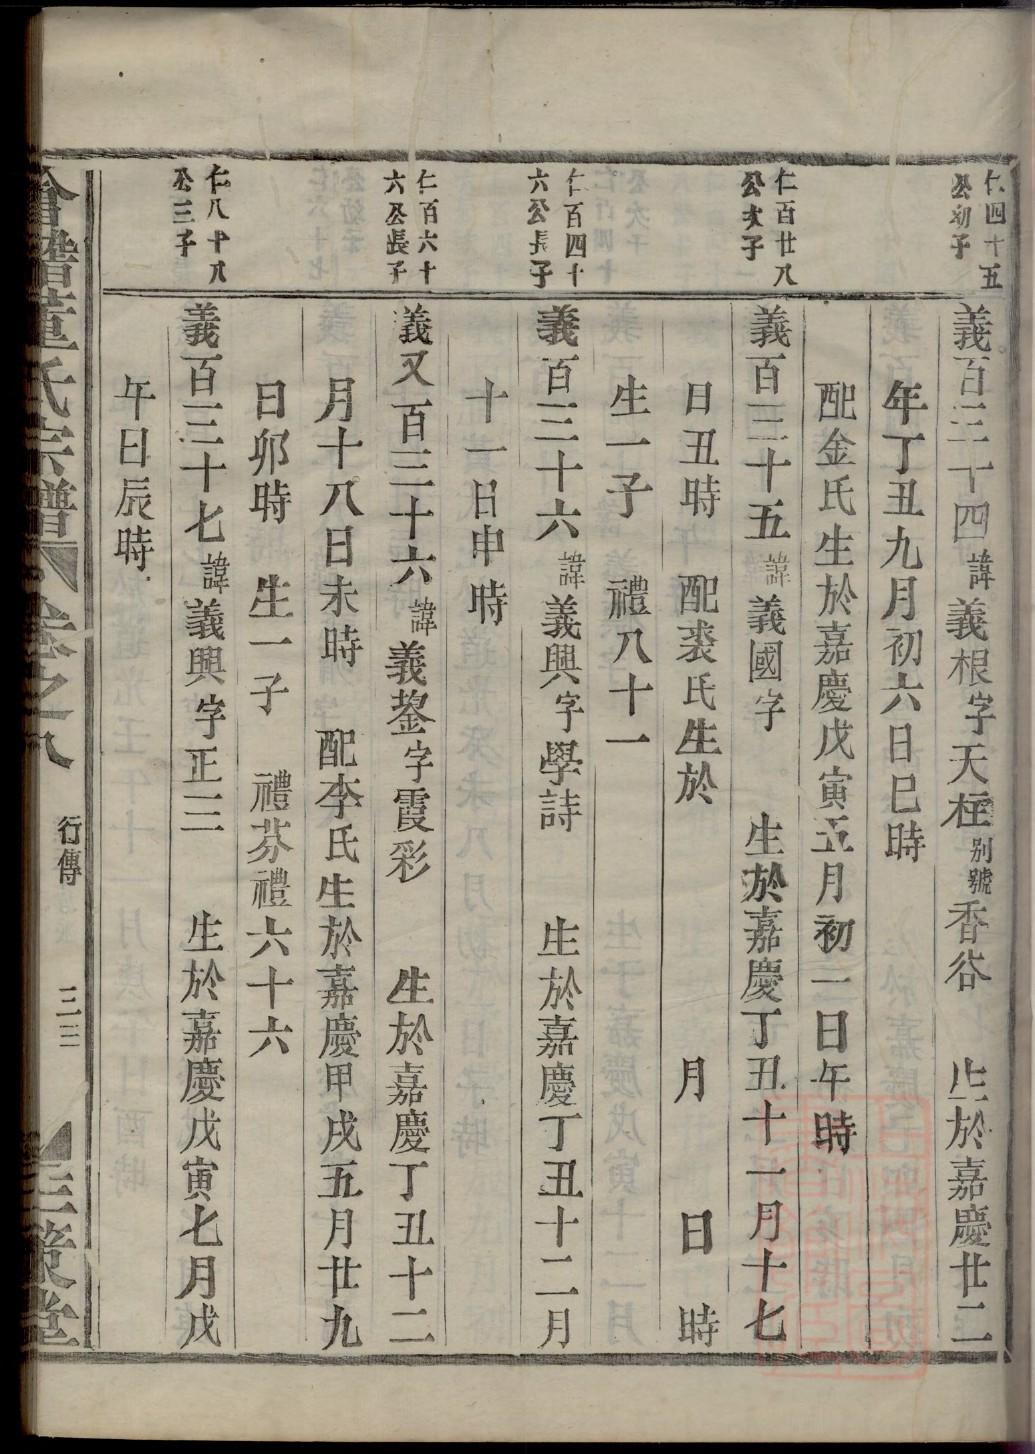 仁四十五
公初子
義百三十四諱義根字天柱別號香谷 生於嘉慶廿二
年丁丑九月初六日巳時
配金氏生於嘉慶戊寅五月初一日午時
仁百廿八
公次子
義百三十五諱義國字 生於嘉慶丁丑十一月十七
日丑時 配裘氏生於 月 日 時
生一子 禮八十一
仁百四十
六公長子
義百三十六諱義興字學詩 生於嘉慶丁丑十二月
十一日申時
仁百六十
六公長子
義又百三十六諱義鋆字霞彩 生於嘉慶丁丑十二
月十八日未時 配李氏生於嘉慶甲戌五月廿九
日卯時 生一子 禮芬禮六十六
仁八十八
公三子
義百三十七諱義興字正三 生於嘉慶戊寅七月戊
午日辰時
會稽董氏宗譜 卷之八 行傳 三三 三策堂